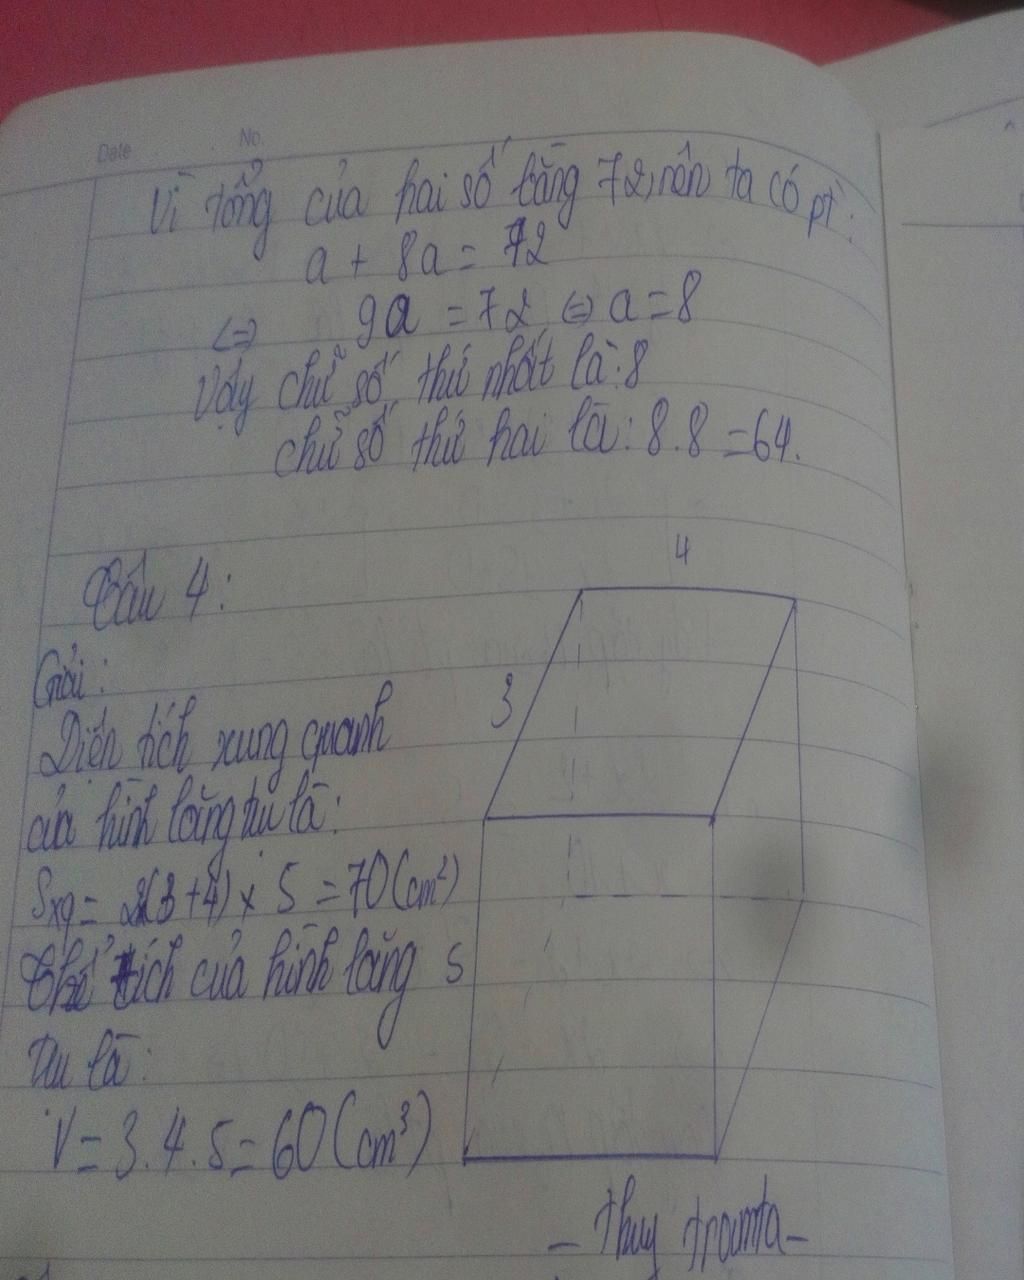 Date No.
Vì tổng của hai số bằng 72, nên ta có pt:
a + 8a = 72
<=> 9a = 72 <=> a = 8
Vậy chữ số thứ nhất là: 8
chữ số thứ hai là: 8.8 = 64.
Câu 4:
4
Giải:
3
Diện tích xung quanh
của hình lăng trụ là:
Sxq = 2(3+4) × 5 = 70 (cm²)
Thể tích của hình lăng
5
trụ là:
V = 3.4.5 = 60 (cm³)
- thuy